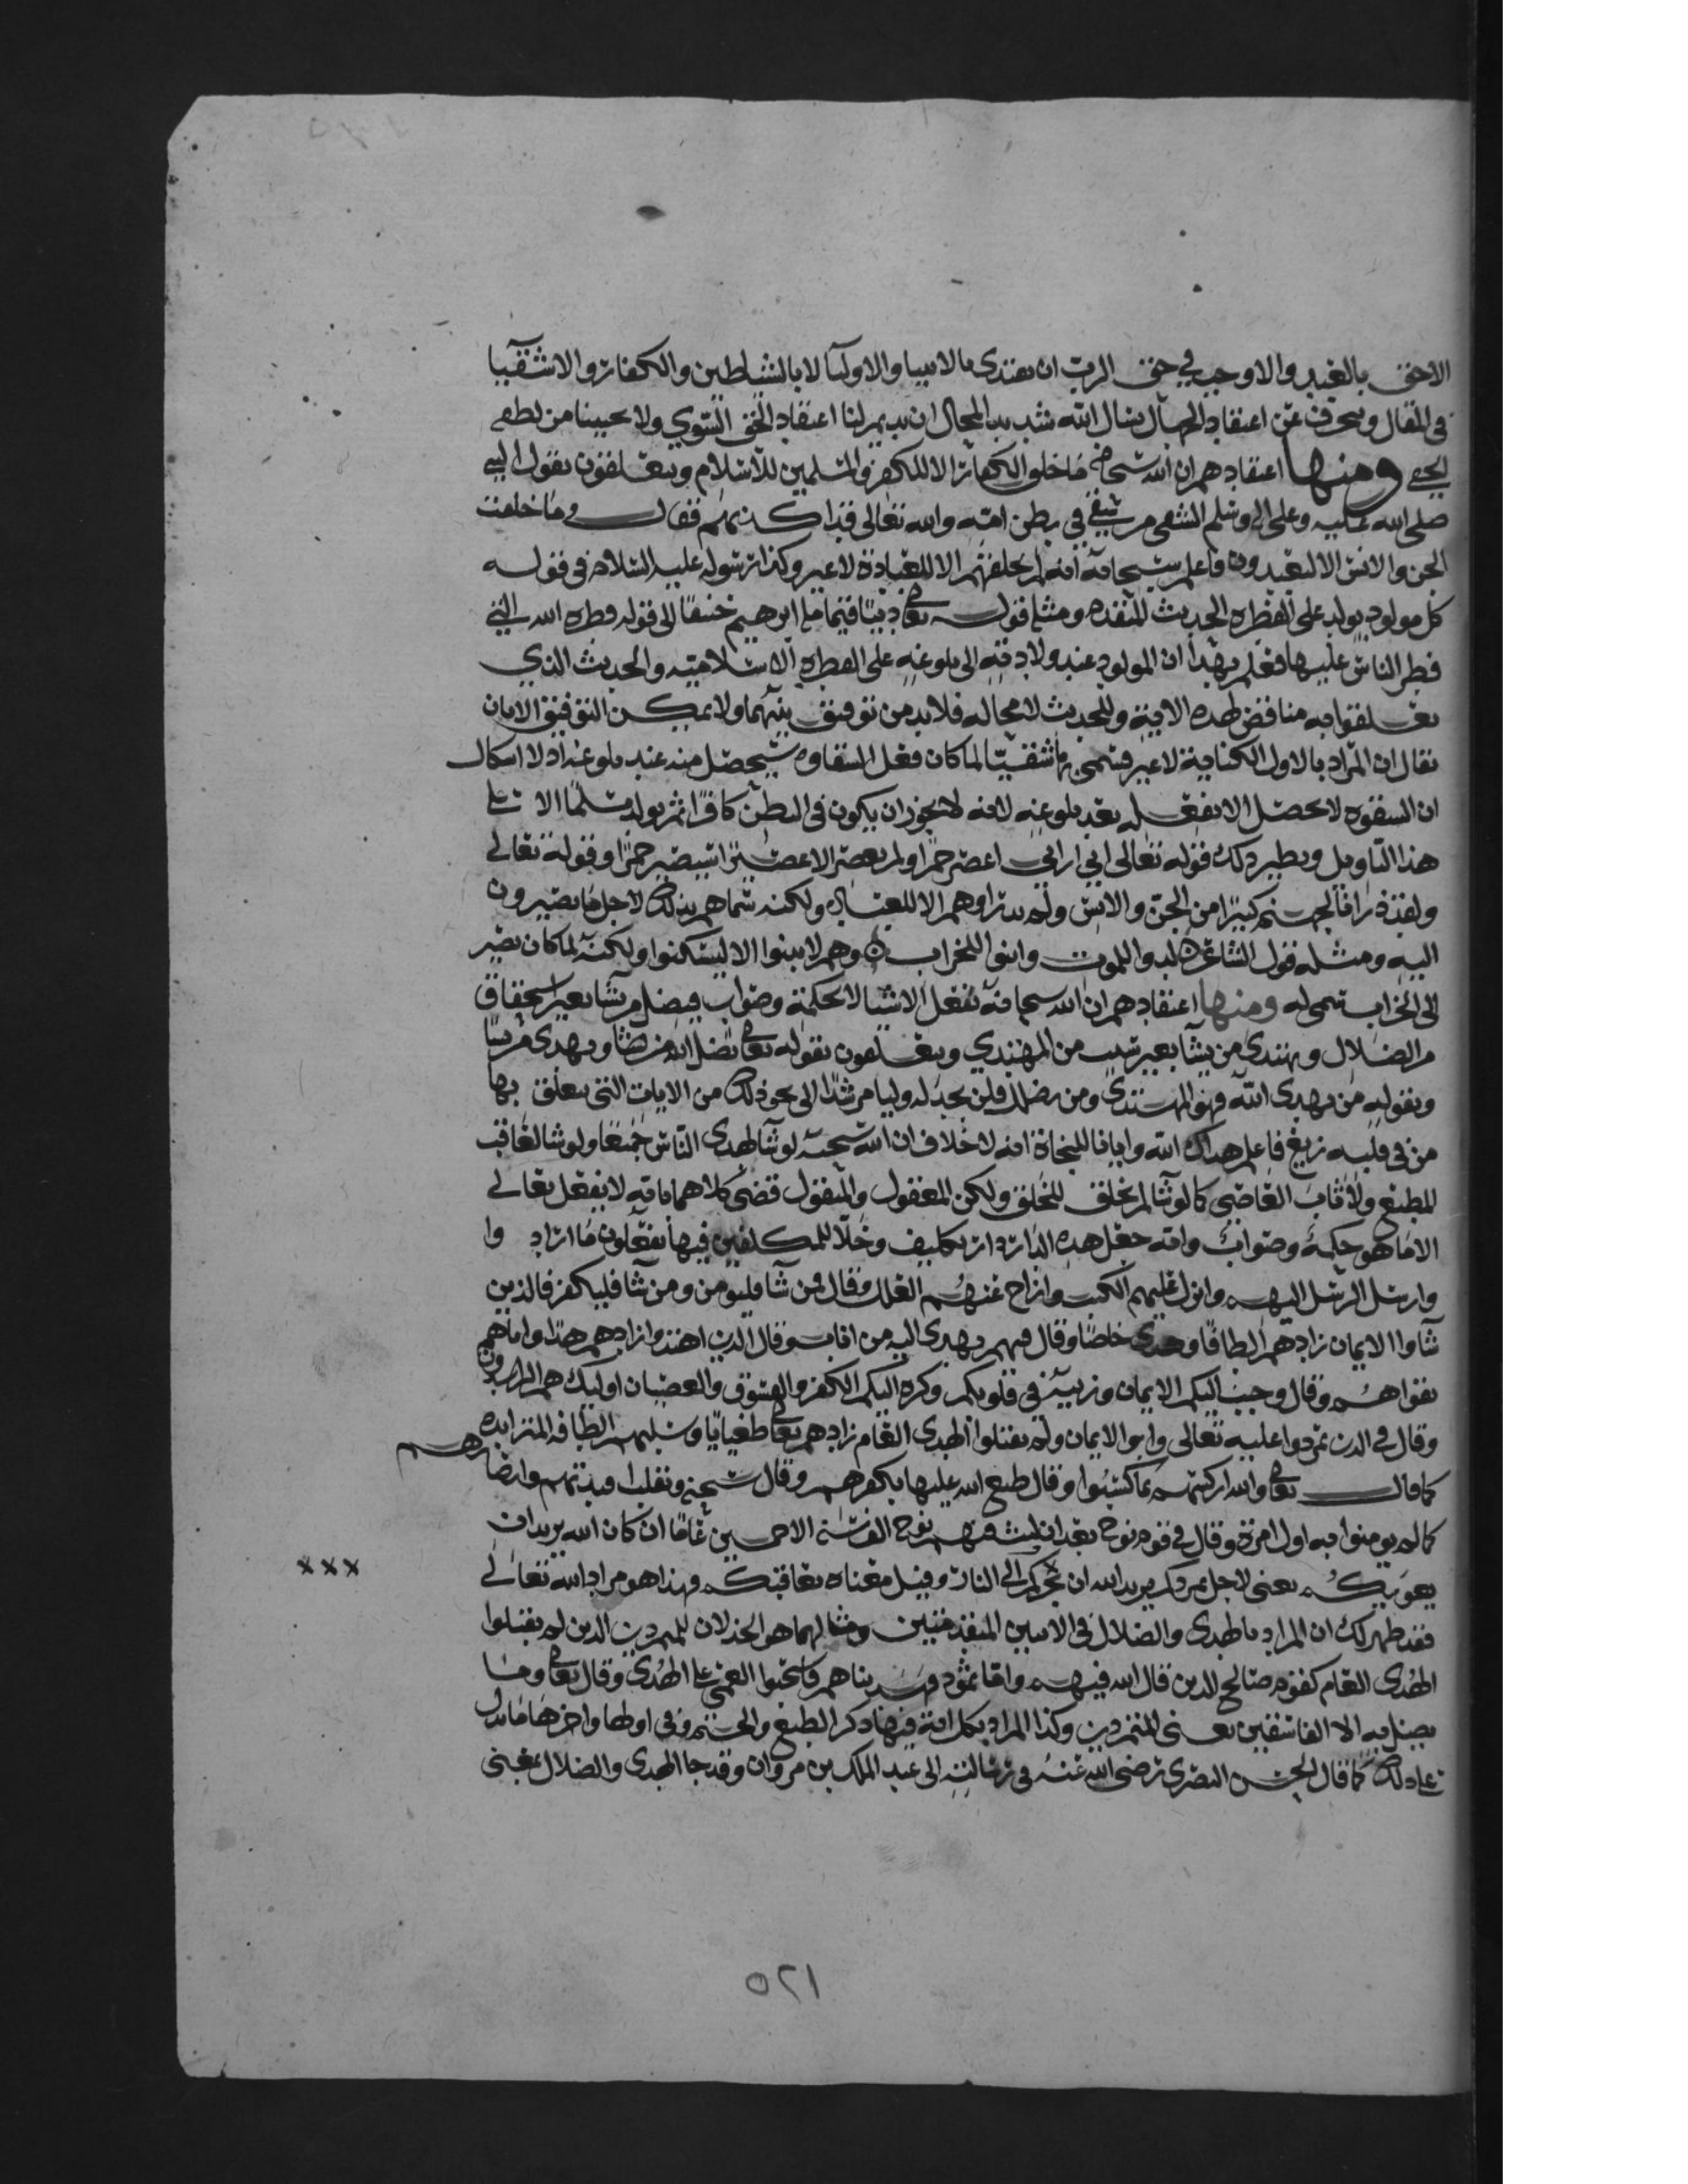 الاحق بالعبد والاوجب في حق الرب ان يقتدي بالانبيا والاوليآ لا بالشياطين والكفار والاشقيآ
في المقال وينحرف عن اعتقاد الجهال نسال الله شديد المحال ان يديم لنا اعتقاد الحق السوي ولا يخيبنا من لطفه
الخفي ومنها اعتقادهم ان الله سبحانه ما خلق الكفار الا للكفر والمسلمين للاسلام ويتعلقون بقول النبي
صلى الله عليه وعلى اله وسلم الشقي من شقي في بطن امه والله تعالى قد اكذبهم فقال وما خلقت
الجن والانس الا ليعبدون فاعلم سبحانه انه لم يخلقهم الا للعبادة لا غير وكذا رسوله عليه السلام في قوله
كل مولود يولد على الفطره الحديث المتقدم ومثله قوله تعالى دينا قيما ملة ابرهيم حنيفا الى قوله فطره الله التي
فطر الناس عليها فعلم بهذا ان المولود عند ولادته الى بلوغه على الفطره الاسلاميه والحديث الذي
تعلقوا به مناقض لهذه الاية وللحديث لا محاله فلا بد من توفيق بينهما ولا يمكن التوفيق الا بان
يقال ان المراد بالاول الكناية لا غير فسمي شقيا لما كان فعل الشقاوه سيحصل منه عند بلوغه اذ لا اشكال
ان الشقوه لا تحصل الا بفعله بعد بلوغه لانه لا يجوز ان يكون في البطن كافرا ثم يولد مسلما الا على
هذا التاويل ونظير ذلك قوله تعالى اني اراني اعصر خمرا ولم يعصر الا عصيرا سيصير خمرا وقوله تعالى
ولقد ذرانا لجهنم كثيرا من الجن والانس ولم يذراهم الا للعباده ولكنه سماهم بذلك لاجل ما يصيرون
اليه ومثله قول الشاعر لدوا للموت وابنوا للخراب وهم لا يبنوا الا ليسكنوا ولكنه لما كان يصير
الى الخراب سمي له ومنها اعتقادهم ان الله سبحانه يفعل الاشيا لا لحكمة وصواب فيضل من يشا بغير استحقاق
من الضلال ويهدي من يشا بغير سبب من المهتدي ويتعلقون بقوله تعالى يضل الله من يشا ويهدي من يشا
وبقوله من يهدي الله فهو المهتدي ومن يضلل فلن تجد له وليا مرشدا الى نحو ذلك من الايات التي يتعلق بها
من في قلبه زيغ فاعلم هداك الله وايانا للنجاة انه لا خلاف ان الله سبحنه لو شآ لهدى الناس جميعا ولو شا لعاقب
المطيع ولاثاب العاصي كما لو شآ لم يخلق الخلق ولكن المعقول والمنقول قضى كلاهما بانه لا يفعل تعالى
الا ما هو حكمة وصواب وانه جعل هذه الدار دار تكليف وخلا للمكلفين فيها يفعلون ما اراد وا
وارسل الرسل اليهم وانزل عليهم الكتب وازاح عنهم العلل وقال فمن شآ فليومن ومن شآ فليكفر فالذين
شآوا الايمان زادهم الطافا وهدى خاصا وقال فيهم ويهدي اليه من اناب وقال الذين اهتدوا زادهم هدى واتاهم
تقواهم وقال وحبب اليكم الايمان وزينه في قلوبكم وكره اليكم الكفر والفسوق والعصيان اوليك هم الراشدون
وقال في الذين تمردوا عليه تعالى وابوا الايمان ولم يقبلوا الهدى العام زادهم تعالى طغيانا وسلبهم الطافه المتزايده
كما قال تعالى والله اركسهم بما كسبوا وقال طبع الله عليها بكفرهم وقال سبحنه ونقلب افيدتهم وابصارهم
كما لم يومنوا به اول مرة وقال في قوم نوح بعد ان لبث فيهم نوح الف سنه الا خمسين عاما ان كان الله يريد ان
يغويكم يعني لاجل تمردكم يريد الله ان يجركم الى النار وقيل معناه يعاقبكم وهذا هو مراد الله تعالى
xxx
فقد ظهر لك ان المراد بالهدى والضلال في الايتين المتقدمتين ومثالهما هو الخذلان للمتمردين الذين لم يقبلوا
الهدى العام كقوم صالح الذين قال الله فيهم واما ثمود فهديناهم فاستحبوا العمى على الهدى وقال تعالى وما
يضل به الا الفاسقين يعني المتمردين وكذا المراد بكل اية فيها ذكر الطبع والختم وفي اولها واخرها ما يدل
على ذلك كما قال الحسن البصري رضي الله عنه في رسالته الى عبد الملك بن مروان وقد جا الهدى والضلال بمعنى
٥٢١